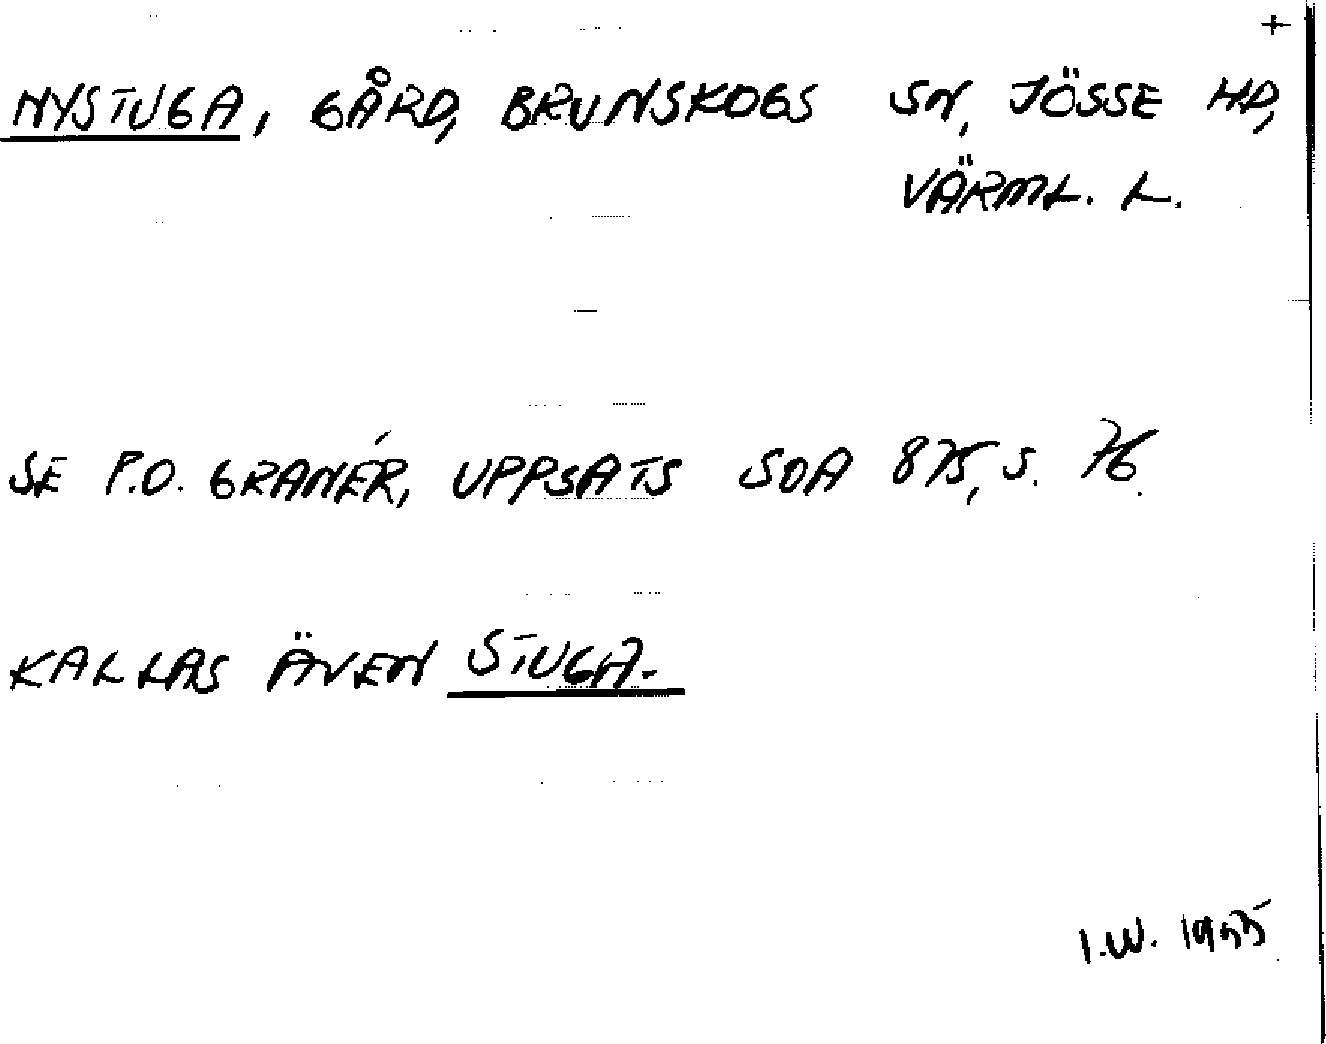 +
NYSTUGA, GÅRD, BRUNSKOGS SN, JÖSSE HD,
VÄRML. L.
SE P.O. GRANÉR, UPPSATS SOA 875, S. 76.
KALLAS ÄVEN STUGA.
I.W. 1955